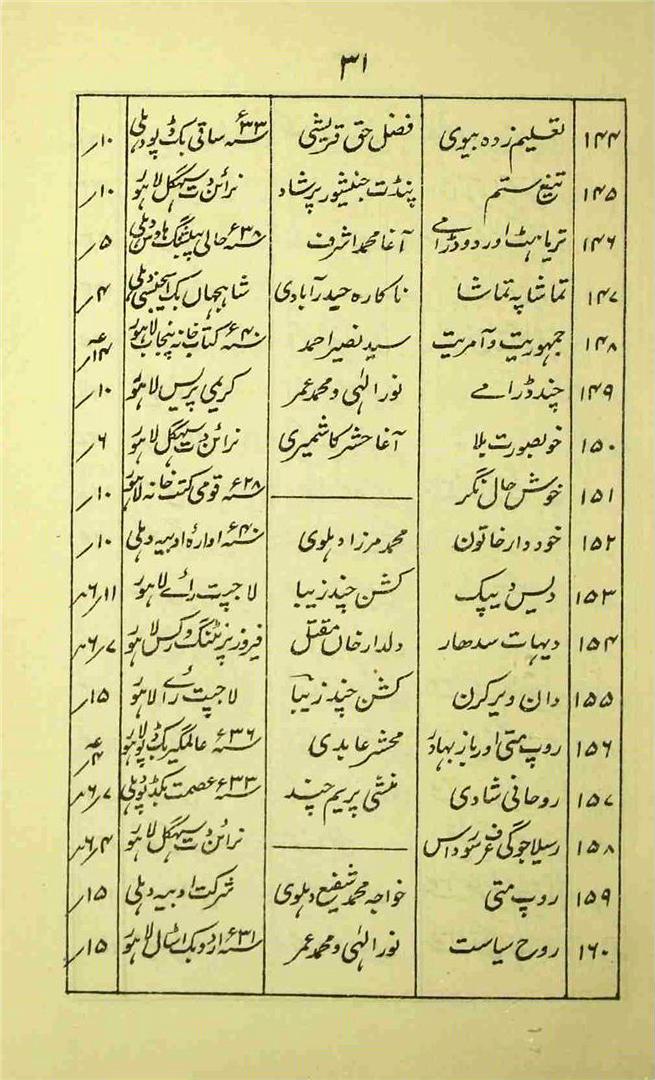 ۳۱
۱۴۴ تعلیم زدہ بیوی فضل حق قریشی ۳۳ء ساقی بک ڈپو دہلی ۱۰؍
۱۴۵ تیغ ستم پنڈت جنیشور پرشاد نرائن دت سہگل لاہور ۱۰؍
۱۴۶ تریاہٹ اور دو ڈرامے آغا محمد اشرف ۳۸ء حالی پبلشنگ ہاؤس دہلی ۵؍
۱۴۷ تماشا پہ تماشا ناکارہ حیدرآبادی شاہجہاں بک ایجنسی دہلی ۴؍
۱۴۸ جمہوریت و آمریت سید نصیر احمد ۴۰ء کتاب خانہ پنجاب لاہور
۱۴۹ چند ڈرامے نور الٰہی و محمد عمر کریمی پریس لاہور ۱۰؍
۱۵۰ خوبصورت بلا آغا حشر کاشمیری نرائن دت سہگل لاہور ۶؍
۱۵۱ خوش حال نگر ــــــ ۲۸ء قومی کتب خانہ لاہور ۱۰؍
۱۵۲ خوددار خاتون محمد مرزا دہلوی ۴۰ء ادارۂ ادبیہ دہلی ۱۰؍
۱۵۳ دیس دیپک کشن چند زیبا لاجپت رائے لاہور
۱۵۴ دیہات سدھار دلدار خاں مقتل فیروز پرنٹنگ ورکس لاہور
۱۵۵ دان ویر کرن کشن چند زیبا لاجپت رائے لاہور ۱۵؍
۱۵۶ روپ متی اور باز بہادر محشر عابدی ۳۶ء عالمگیر بک ڈپو لاہور
۱۵۷ روحانی شادی منشی پریم چند ۳۳ء عصمت بکڈپو دہلی
۱۵۸ رسیلا جوگی عرف سورداس ــــــ نرائن دت سہگل لاہور
۱۵۹ روپ متی خواجہ محمد شفیع دہلوی شرکت ادبیہ دہلی ۱۵؍
۱۶۰ روح سیاست نور الٰہی و محمد عمر ۳۱ء اردو بک اسٹال لاہور ۱۵؍